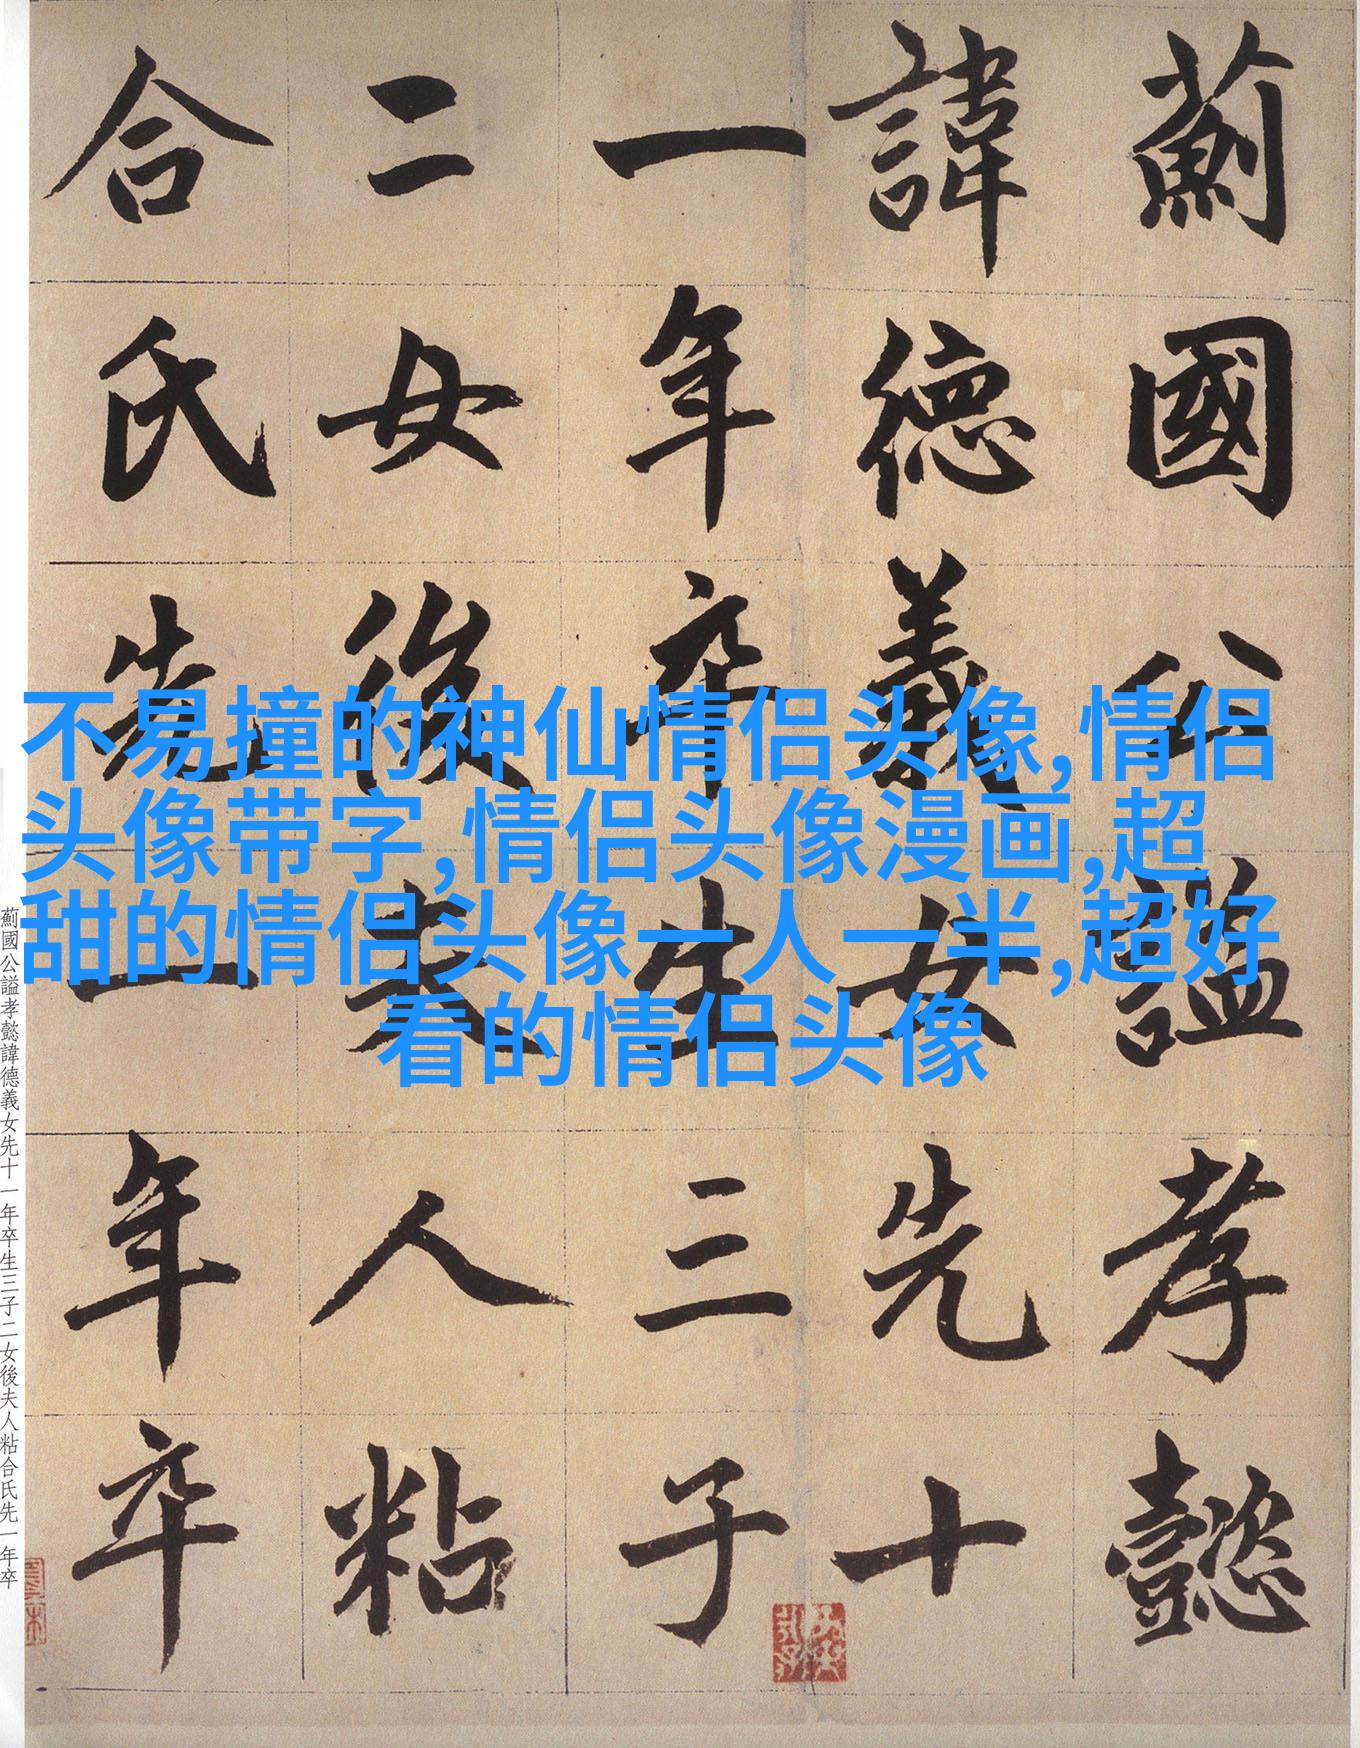 薊國公謚孝懿
諱德義女先十
一年卒生三子
二女後夫人粘
合氏先一年卒
不易撞的神仙情侣头像,情侣
头像带字,情侣头像漫画,超
甜的情侣头像一人一半,超好
看的情侣头像
薊國公謚孝懿諱德義女先十一年卒生三子二女後夫人粘合氏先一年卒